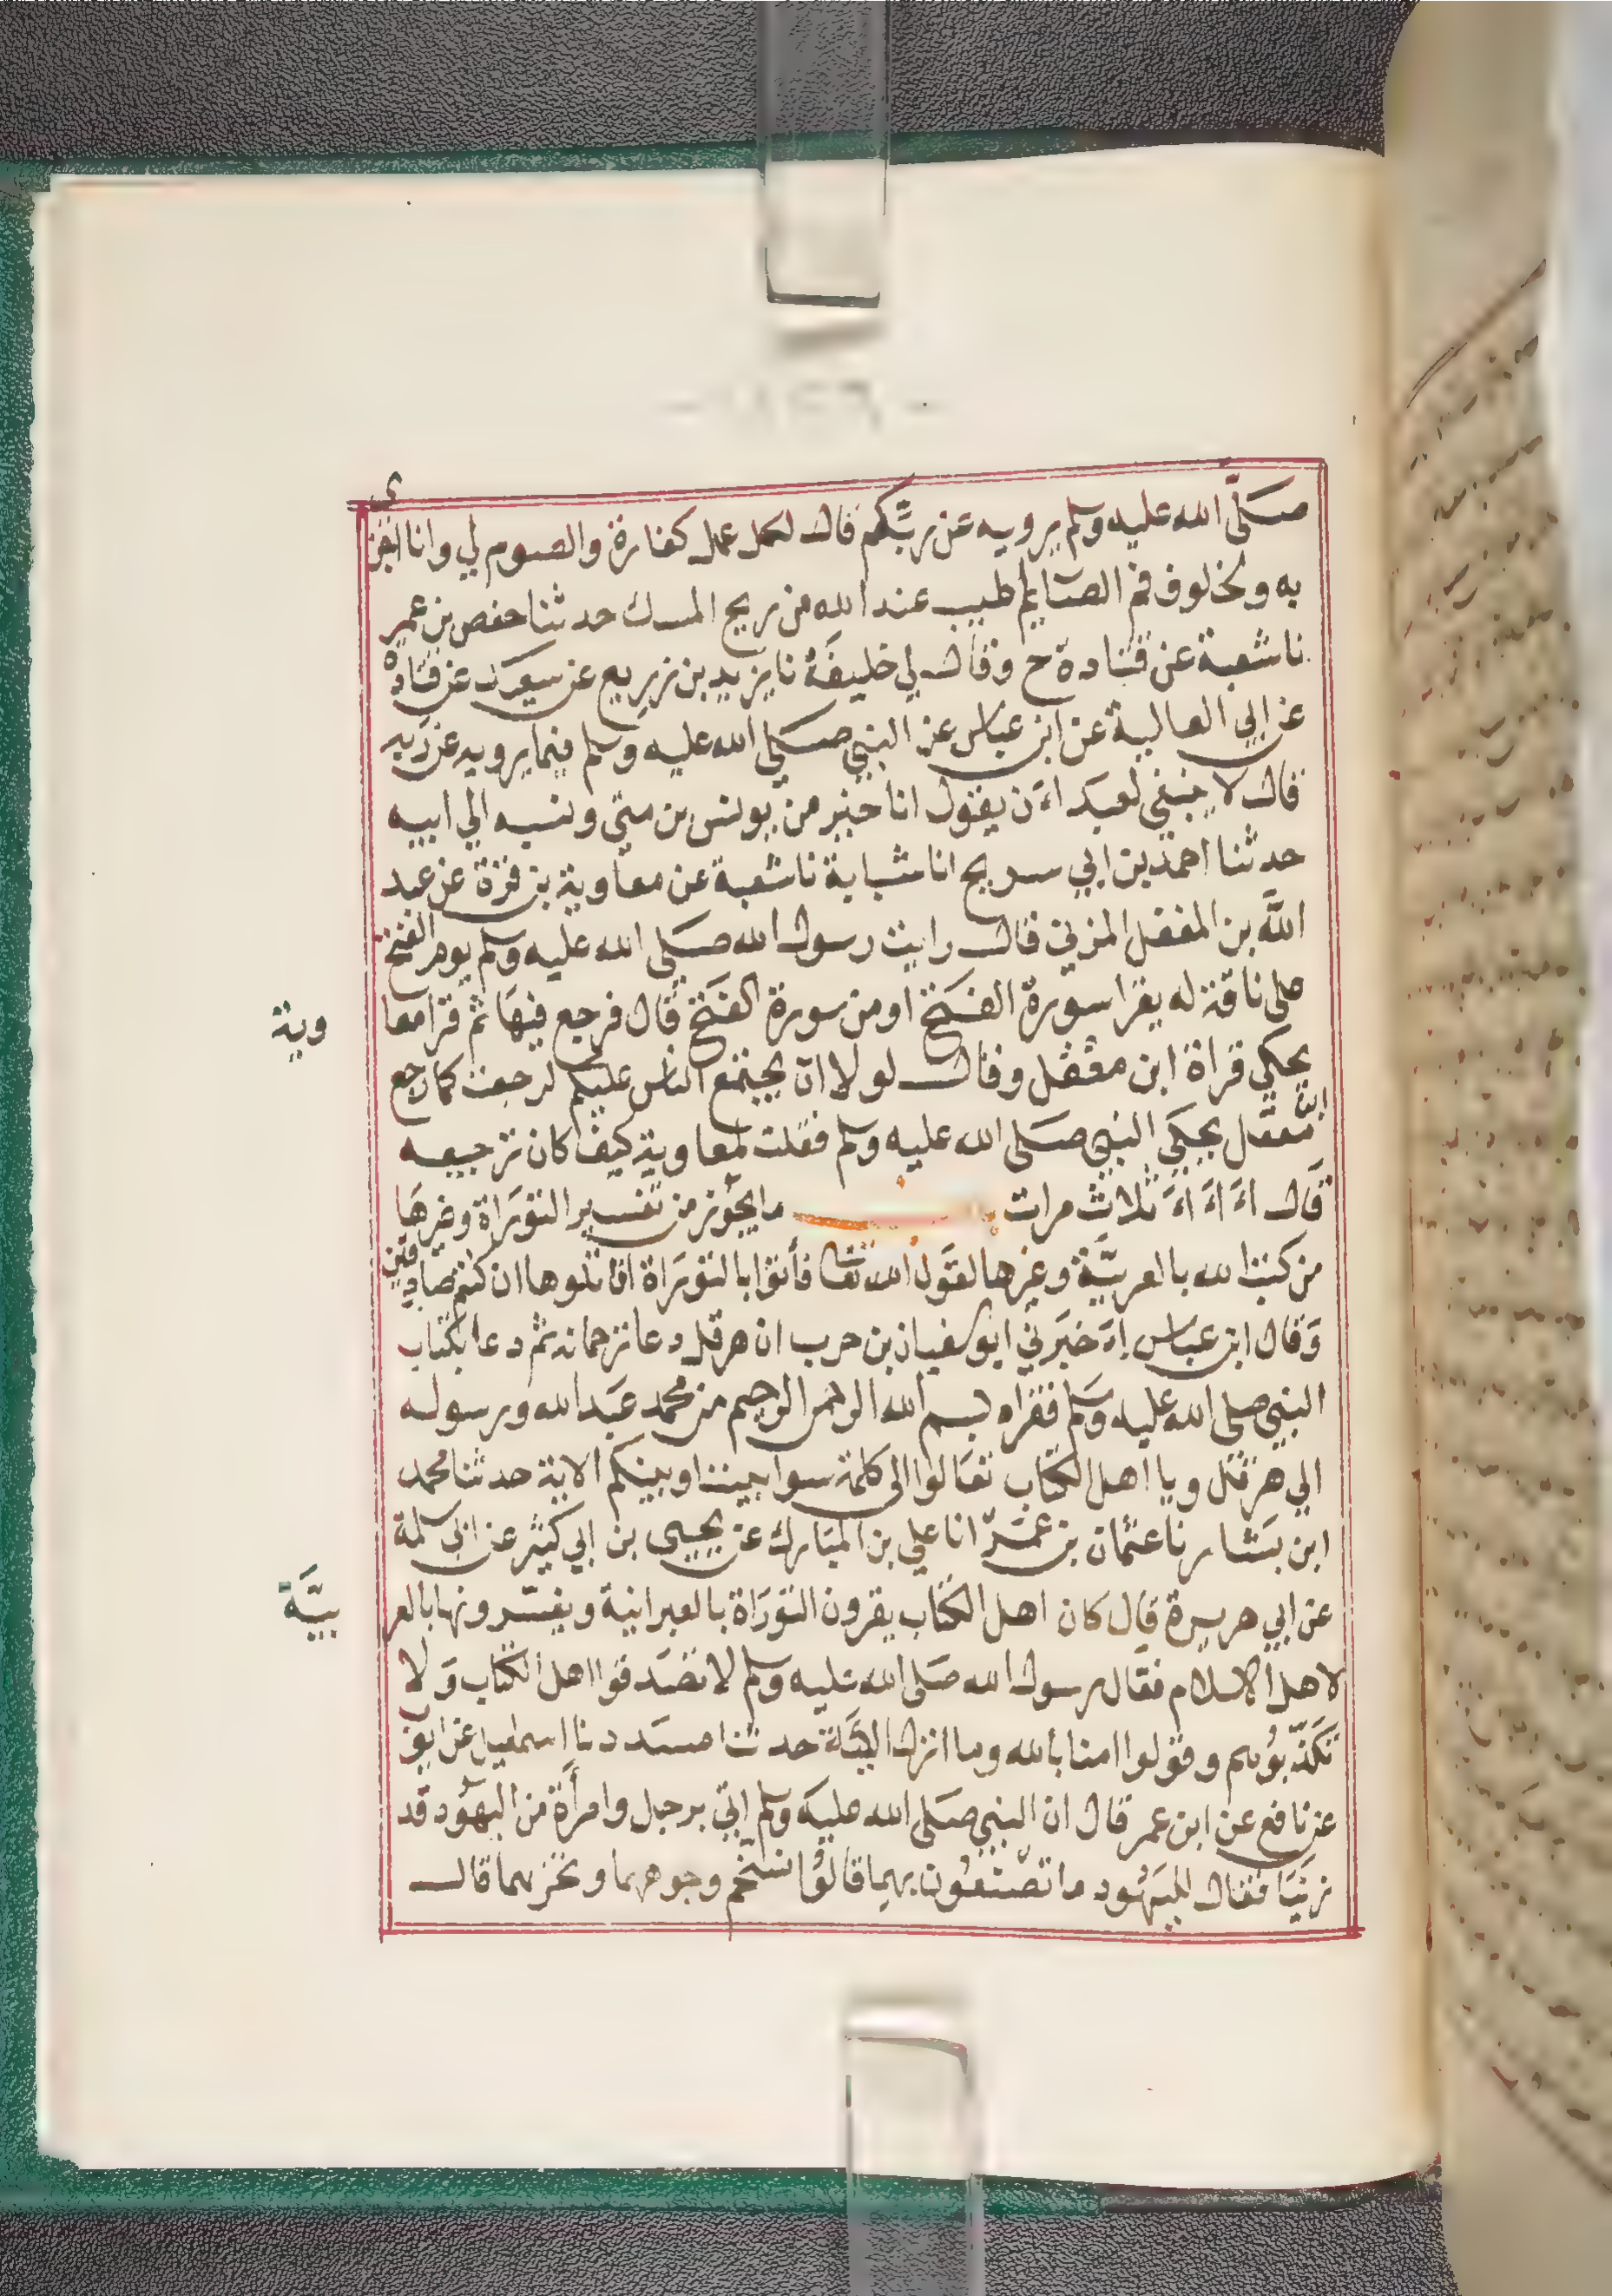 صلى الله عليه وسلم يرويه عن ربكم قال لكل عمل كفارة والصوم لي وانا اجزى
به ولخلوف فم الصايم اطيب عند الله من ريح المسك حدثنا حفص بن عمر
نا شعبة عن قتادة ح وقال لي خليفة نا يزيد بن زريع عن سعيد عن قتادة
عن ابي العالية عن ابن عباس عن النبي صلى الله عليه وسلم فيما يرويه عن ربه
قال لا ينبغي لعبد اءن يقول انا خير من يونس بن متي ونسبه الي ابيه
حدثنا احمد بن ابي سريج انا شبابة نا شعبة عن معاوية بن قرة عن عبد
الله بن المغفل المزني قال رايت رسول الله صلى الله عليه وسلم يوم الفتح
على ناقة له يقرا سورة الفتح او من سورة الفتح قال فرجع فيها ثم قرا معا
وية
يحكي قراة ابن مغفل وقال لولا ان يجتمع الناس عليكم لرجعت كما رجع
ابن مغفل يحكي النبي صلى الله عليه وسلم فقلت لمعاوية كيف كان ترجيعه
قال اءَ اءَ اءَ ثلاث مرات ما يجوز من تفسير التوراة وغيرها
من كتب الله بالعربية وغيرها لقول الله تعا فأتوا بالتوراة فاتلوها ان كنتم صادقين
وقال ابن عباس اءخبرني ابو سفيان بن حرب ان هرقل دعا ترجمانه ثم دعا بكتاب
النبي صلى الله عليه وسلم فقراه بسم الله الرحمن الرحيم من محمد عبد الله ورسوله
الي هرقل ويا اهل الكتاب تعالوا الى كلمة سوا بيننا وبينكم الاية حدثنا محمد
ابن بشار نا عثمان بن عمر انا علي بن المبارك عن يحيى بن ابي كثير عن ابي سلمة
عن ابي هريرة قال كان اهل الكتاب يقرون التوراة بالعبرانية ويفسرونها بالعر
بيَّة
لاهل الاسلام فقال رسول الله صلى الله عليه وسلم لا تصدقوا اهل الكتاب ولا
تكذبوهم وقولوا امنا بالله وما انزل الية حدثنا مسدد نا اسمعيل عن ايوب
عن نافع عن ابن عمر قال ان النبي صلى الله عليه وسلم اتي برجل وامرأة من اليهود قد
زنيا فقال لليهود ما تصنعون بهما قالوا نسخم وجوههما ونخزيهما قال